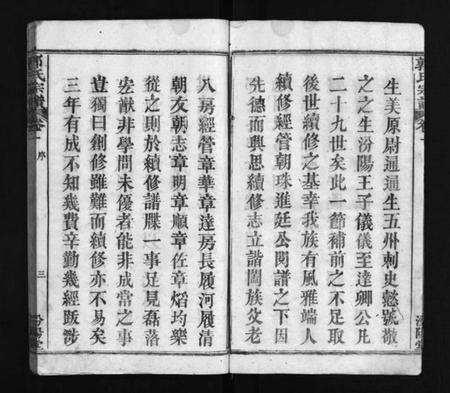 生美原尉通通生五州刺史懿號敬
之之生汾陽王子儀儀至達卿公凡
二十九世矣此一節補前之不足取
後世續修之基幸我族有風雅端人
續修經管朝珠進廷公閱譜之下因
先德而興思續修志立諧闔族父老
八房經管章華章達房長履河履清
朝友朝志章明章順章佐章熖均樂
從之則於續修譜牒一事足見磊落
宏猷非學問未優者能非成當之事
豈獨曰創修雖難而續修亦不易矣
三年有成不知幾費辛勤幾經跋涉
郭氏宗譜 卷一
序
三
汾陽堂